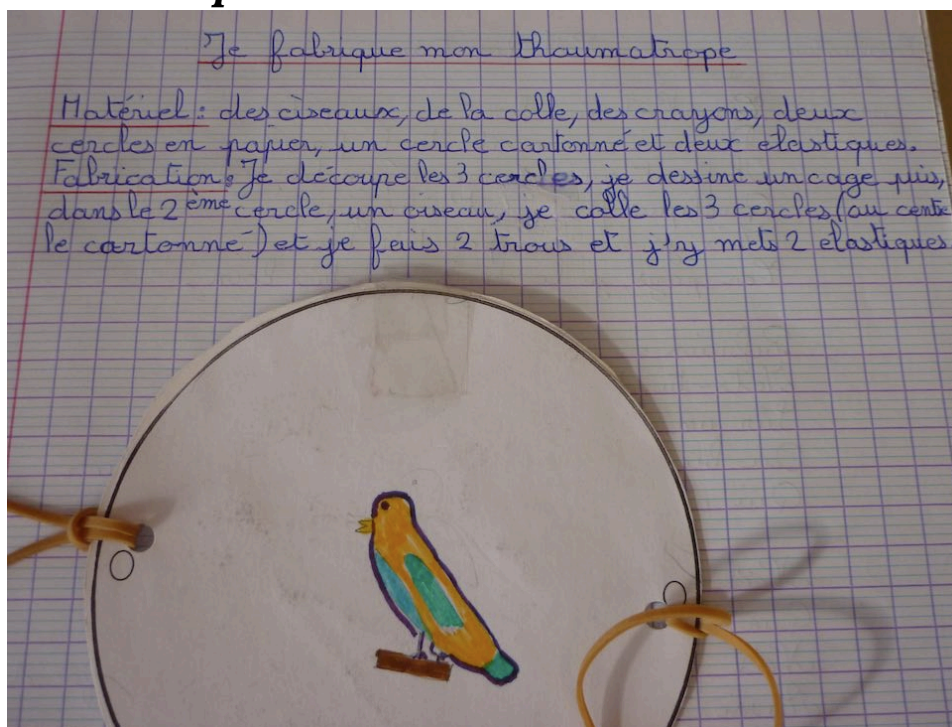 Je fabrique mon thaumatrope
Matériel : des ciseaux, de la colle, des crayons, deux
cercles en papier, un cercle cartonné et deux élastiques.
Fabrication : Je découpe les 3 cercles, je dessine un cage puis,
dans le 2ème cercle, un oiseau, je colle les 3 cercles (au centre
le cartonné) et je fais 2 trous et j'y mets 2 élastiques